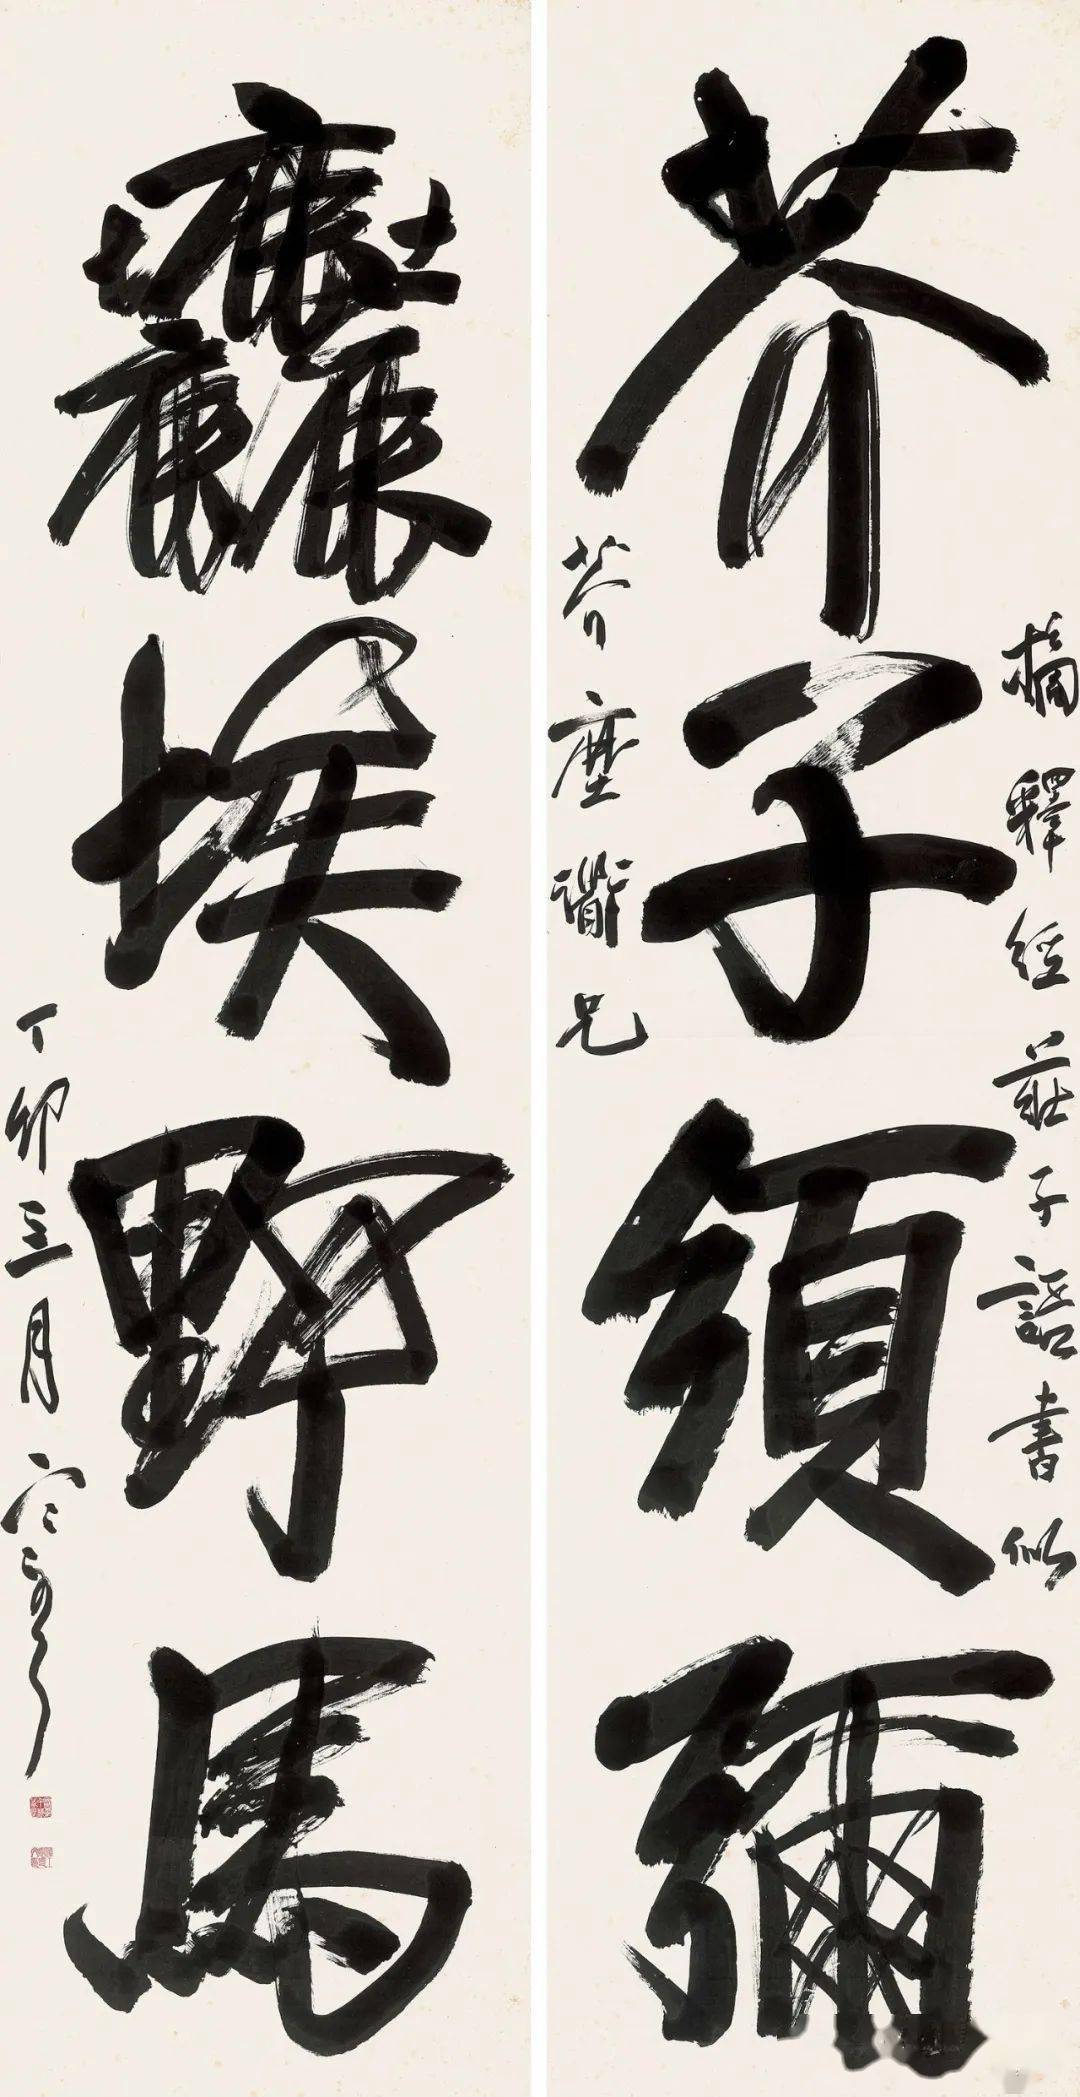 摘釋經莊子語書似
芥子須彌
芥塵衜兄
塵埃野馬
丁卯三月寒雲